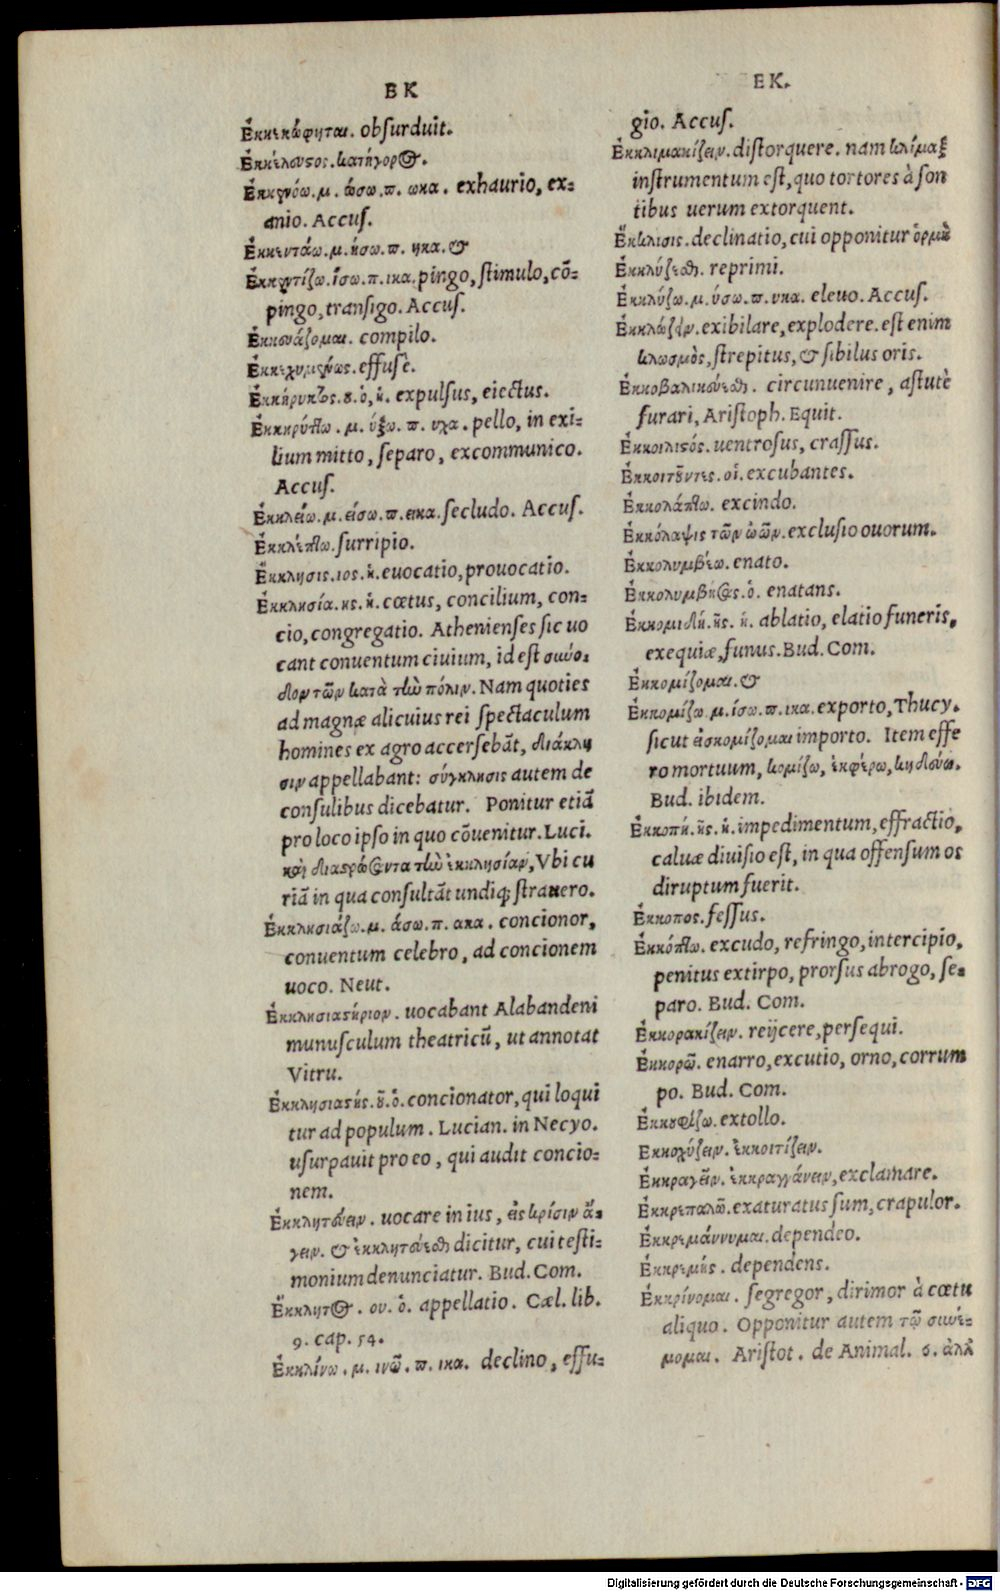 EK
Ἐκκεκώφηται. obsurduit.
Ἐκκέλευστος. κατήγορος.
Ἐκκενόω. μ. ώσω. π. ωκα. exhaurio, ex-
anio. Accus.
Ἐκκεντάω. μ. ήσω. π. ηκα. &
Ἐκκεντίζω. ίσω. π. ικα. pingo, stimulo, cō-
pingo, transigo. Accus.
compilo.
Ἐκκεχυμένως. effusè.
Ἐκκήρυκτος. ȣ. ὁ, ἡ. expulsus, eiectus.
Ἐκκηρύττω. μ. ύξω. π. υχα. pello, in exi-
lium mitto, separo, excommunico.
Accus.
Ἐκκλείω. μ. είσω. π. εικα. secludo. Accus.
Ἐκκλέπτω. surripio.
Ἔκκλησις. ιος. ἡ. euocatio, prouocatio.
Ἐκκλησία. ης. ἡ. cœtus, concilium, con-
cio, congregatio. Athenienses sic uo
cant conuentum ciuium, id est σύνο-
δον τῶν κατὰ τὴν πόλιν. Nam quoties
ad magnæ alicuius rei spectaculum
homines ex agro accersebāt, διάκλη
σιν appellabant: σύγκλησις autem de
consulibus dicebatur. Ponitur etiā
pro loco ipso in quo cōuenitur. Luci.
καὶ διαστρώσαντα τὴν ἐκκλησίαν, Vbi cu
riā in qua consultāt undiq; strauero.
Ἐκκλησιάζω. μ. άσω. π. ακα. concionor,
conuentum celebro, ad concionem
uoco. Neut.
Ἐκκλησιαστήριον. uocabant Alabandeni
munusculum theatricū, ut annotat
Vitru.
Ἐκκλησιαστής. ȣ. ὁ. concionator, qui loqui
tur ad populum. Lucian. in Necyo.
usurpauit pro eo, qui audit concio-
nem.
Ἐκκλητεύειν. uocare in ius, εἰς κρίσιν ἄ-
γειν. & ἐκκλητεύεσθαι dicitur, cui testi-
monium denunciatur. Bud. Com.
Ἔκκλητος. ου. ὁ. appellatio. Cæl. lib.
9. cap. 54.
Ἐκκλίνω. μ. ινῶ. π. ικα. declino, effu-
EK.
gio. Accus.
Ἐκκλιμακίζειν. distorquere. nam κλίμαξ
instrumentum est, quo tortores à son
tibus uerum extorquent.
Ἔκκλισις. declinatio, cui opponitur ὁρμὴ
Ἐκκλύζεσθαι. reprimi.
Ἐκκλύζω. μ. ύσω. π. υκα. eleuo. Accus.
Ἐκκλώζειν. exibilare, explodere. est enim
κλωσμὸς, strepitus, & sibilus oris.
Ἐκκοβαλικεύεσθαι. circunuenire, astutè
furari, Aristoph. Equit.
Ἐκκοιλιστός. uentrosus, crassus.
Ἐκκοιτοῦντες. οἱ. excubantes.
Ἐκκολάπτω. excindo.
Ἐκκόλαψις τῶν ὠῶν. exclusio ouorum.
Ἐκκολυμβέω. enato.
Ἐκκολυμβητὴς. ὁ. enatans.
Ἐκκομιδή. ῆς. ἡ. ablatio, elatio funeris,
exequiæ, funus. Bud. Com.
Ἐκκομίζομαι. &
Ἐκκομίζω. μ. ίσω. π. ικα. exporto, Thucy.
sicut ἐισκομίζομαι importo. Item effe
ro mortuum, κομίζω, ἐκφέρω, κηδεύω.
Bud. ibidem.
Ἐκκοπή. ῆς. ἡ. impedimentum, effractio,
caluæ diuisio est, in qua offensum os
diruptum fuerit.
Ἔκκοπος. fessus.
Ἐκκόπτω. excudo, refringo, intercipio,
penitus extirpo, prorsus abrogo, se-
paro. Bud. Com.
Ἐκκορακίζειν. reijcere, persequi.
Ἐκκορῶ. enarro, excutio, orno, corrum
po. Bud. Com.
Ἐκκουφίζω. extollo.
Εκκοχύζειν. ἐκκοιτίζειν.
Ἐκκραγεῖν. ἐκκραγγάνειν, exclamare.
Ἐκκρεπαλῶ. exaturatus sum, crapulor.
Ἐκκρεμάννυμαι. dependeo.
Ἐκκρεμής. dependens.
Ἐκκρίνομαι. segregor, dirimor à cœtu
aliquo. Opponitur autem τῷ συνέ-
μομαι. Aristot. de Animal. 6. ἀλλ
Digitalisierung gefördert durch die Deutsche Forschungsgemeinschaft - DFG